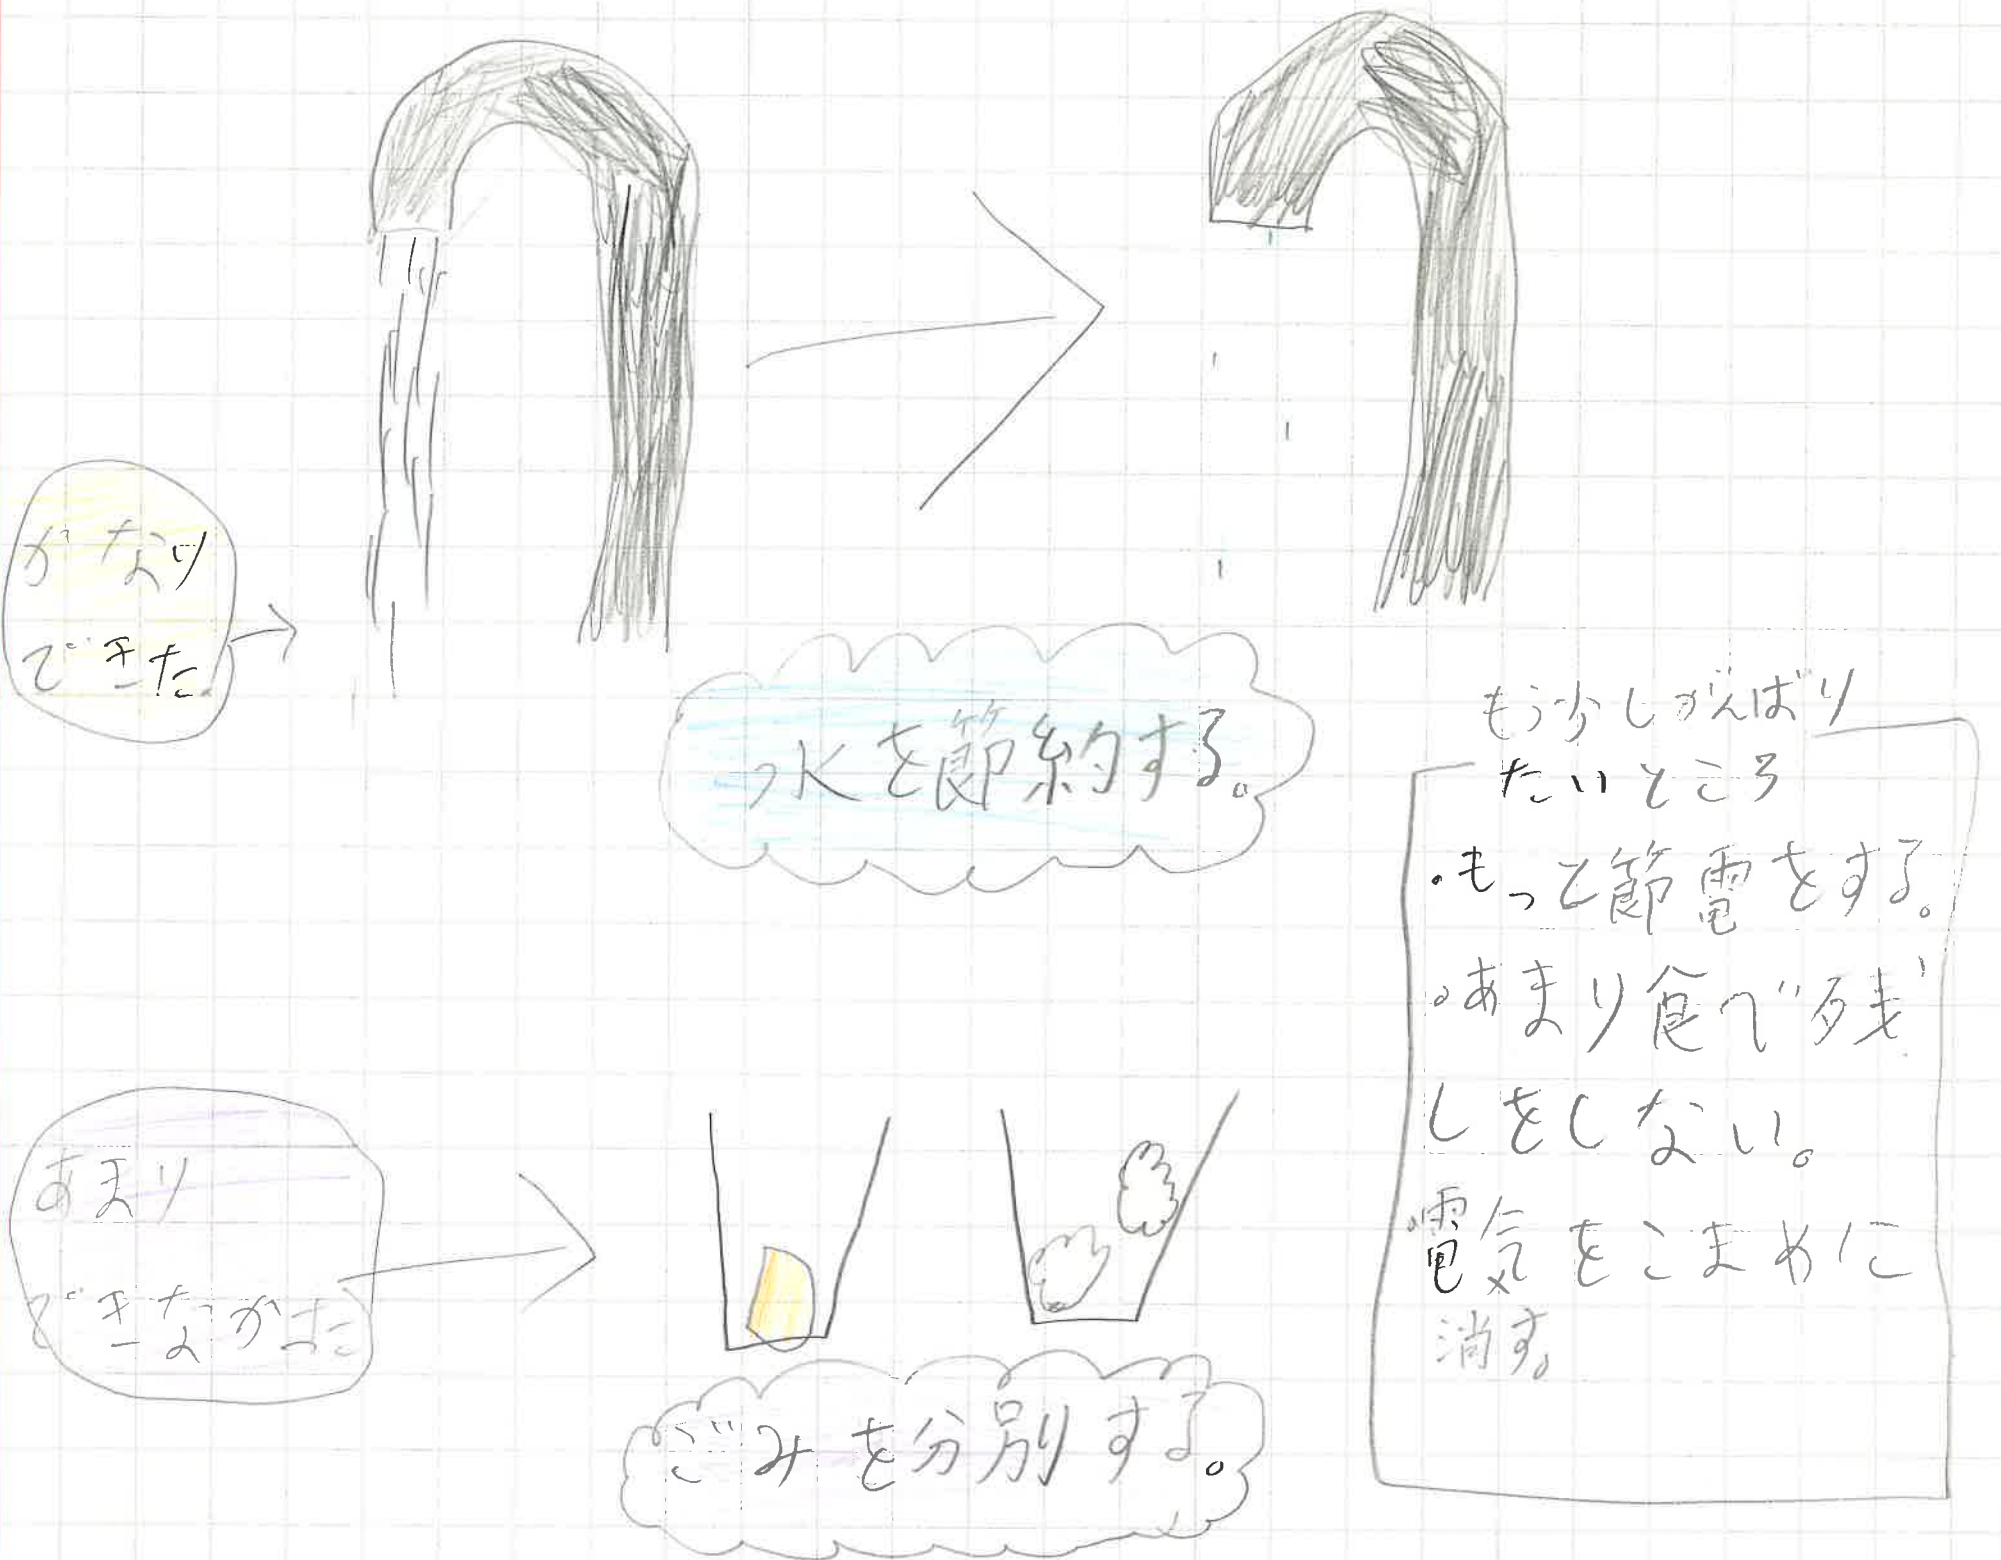 かなり
できた
水を節約する。
もう少しがんばり
たいところ
・もっと節電をする。
・あまり食べ残
しをしない。
・電気をこまめに
消す。
あまり
できなかった
ごみを分別する。